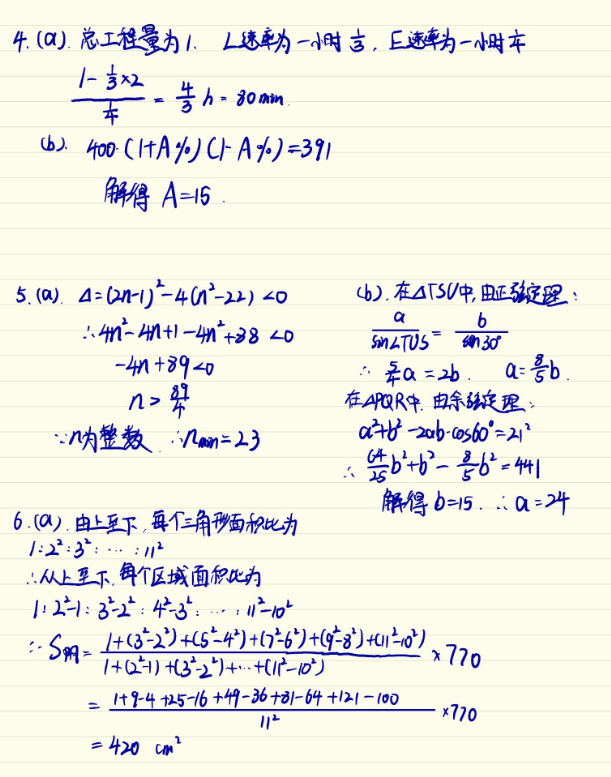 4.(a). 总工程量为1. L速率为一小时 1/3, E速率为一小时 1/4
(1 - 1/3×2) / (1/4) = 4/3 h = 80 min.
(b). 400·(1+A%)(1-A%)=391
解得 A=15.
5.(a). Δ=(2n-1)²-4(n²-22)<0
∴4n²-4n+1-4n²+88<0
-4n+89<0
n>89/4
∵n为整数 ∴n_min=23
(b). 在△TSU中,由正弦定理:
a/sin∠TUS = b/sin30°
∴ 5/4 a=2b. a=8/5 b.
在△PQR中. 由余弦定理:
a²+b²-2ab·cos60°=21²
∴ 64/25 b²+b²-8/5 b²=441
解得 b=15. ∴a=24
6.(a). 由上至下,每个三角形面积比为
1:2²:3²:⋯:11²
∴从上至下,每个区域面积比为
1:2²-1:3²-2²:4²-3²:⋯:11²-10²
∴S阴= (1+(3²-2²)+(5²-4²)+(7²-6²)+(9²-8²)+(11²-10²)) / (1+(2²-1)+(3²-2²)+⋯+(11²-10²)) ×770
= (1+9-4+25-16+49-36+81-64+121-100) / 11² ×770
=420 cm²